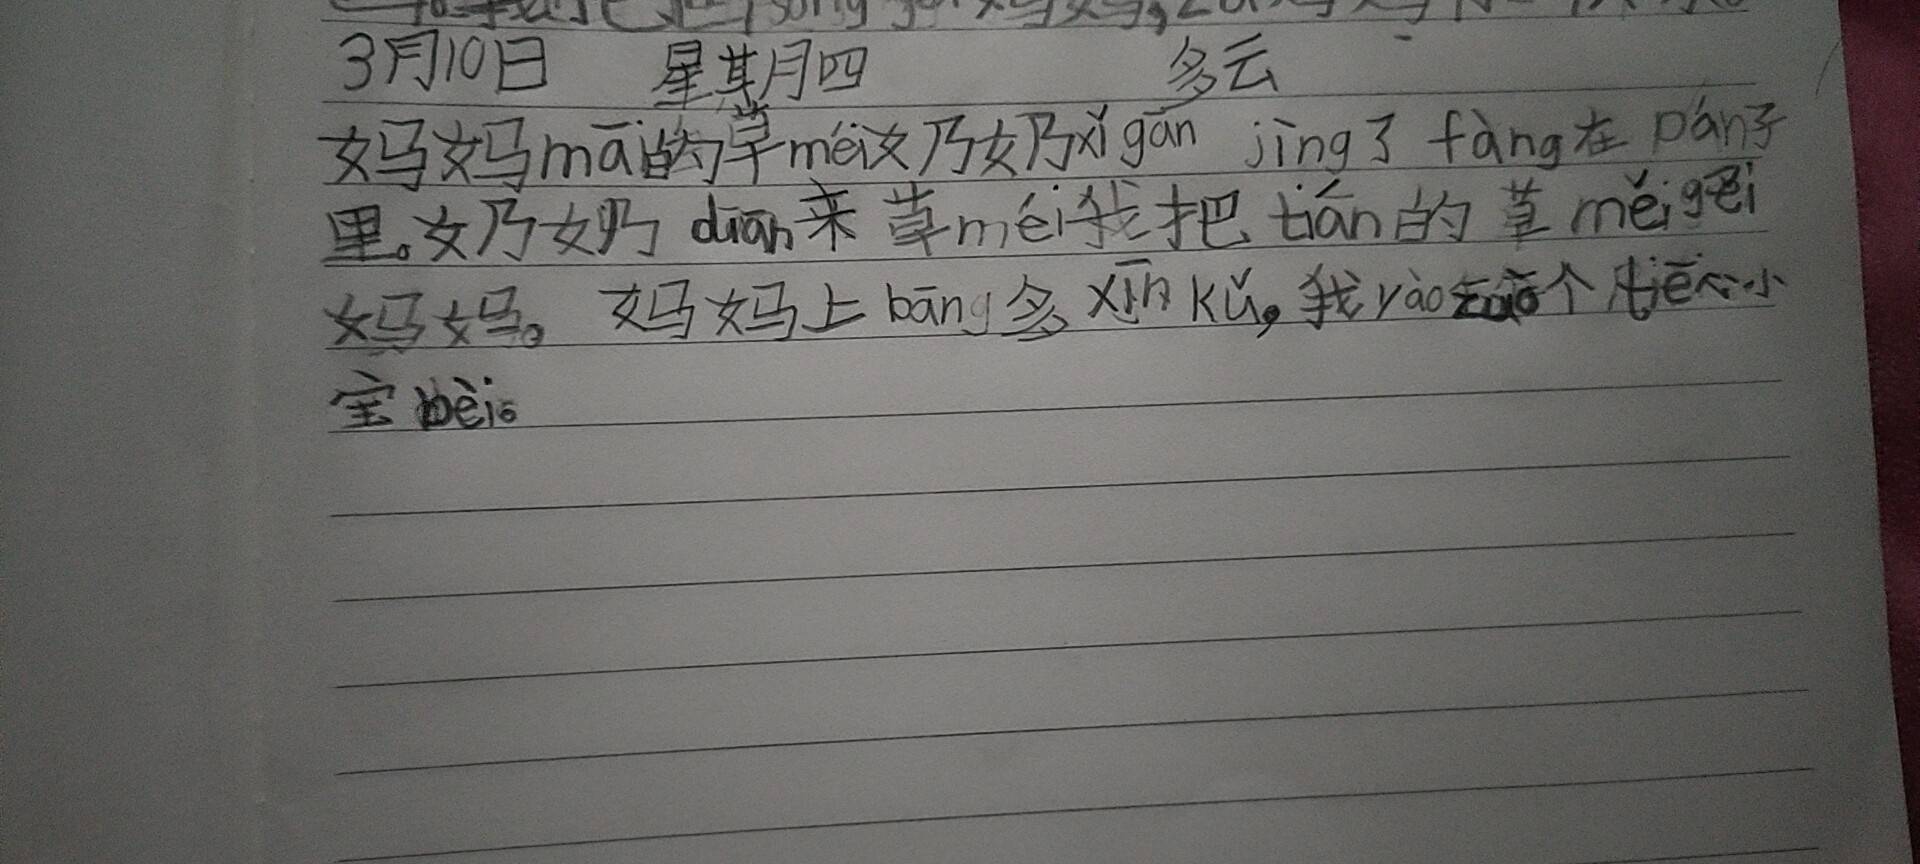 3月10日 星期四 多云
妈妈māi的草méi奶奶xǐ gān jìng了 fàng在 pán子
里。奶奶 duān来 草méi我把 tián的 草 měi gěi
妈妈。 妈妈上 bāng 多 xīn kǔ,我 yào zuò个 tiē心小
宝 bèi。